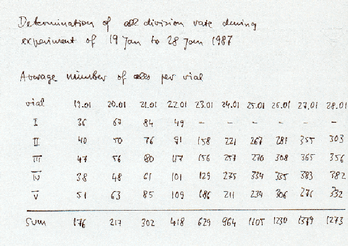 Determination of cell division rate during
experiment of 19 Jan to 28 Jan 1987
Average number of cells per vial
vial 19.01 20.01 21.01 22.01 23.01 24.01 25.01 26.01 27.01 28.01
I 36 67 84 49 -
II 40 50 76 91 158 221 267 281 355 303
III 47 56 80 117 156 257 270 308 365 356
IV 38 48 61 101 129 275 334 355 383 282
V 51 63 85 109 186 211 234 306 276 332
Sum 176 217 302 418 629 964 1105 1250 1379 1273